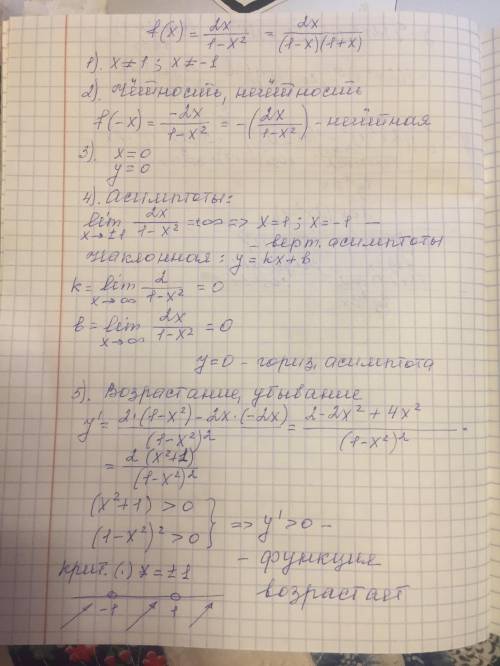 f(x) = 2x/(1-x²) = 2x/((1-x)(1+x))
1). x≠1 ; x≠-1
2). Чётность, нечётность
f(-x) = -2x/(1-x²) = -(2x/(1-x²)) - нечётная
3). x=0
y=0
4). Асимптоты:
lim x→±1 2x/(1-x²) = ∞ => x=1 ; x=-1 —
- верт. асимптоты
Наклонная: y=kx+b
k = lim x→∞ 2/(1-x²) = 0
b = lim x→∞ 2x/(1-x²) = 0
y=0 - гориз. асимптота
5). Возрастание, убывание
y' = (2·(1-x²)-2x·(-2x))/(1-x²)² = (2-2x²+4x²)/(1-x²)² =
= 2(x²+1)/(1-x²)²
(x²+1)>0
(1-x²)²>0 } => y'>0 -
- функция
крит. (.) x=±1
возрастает
-1 1